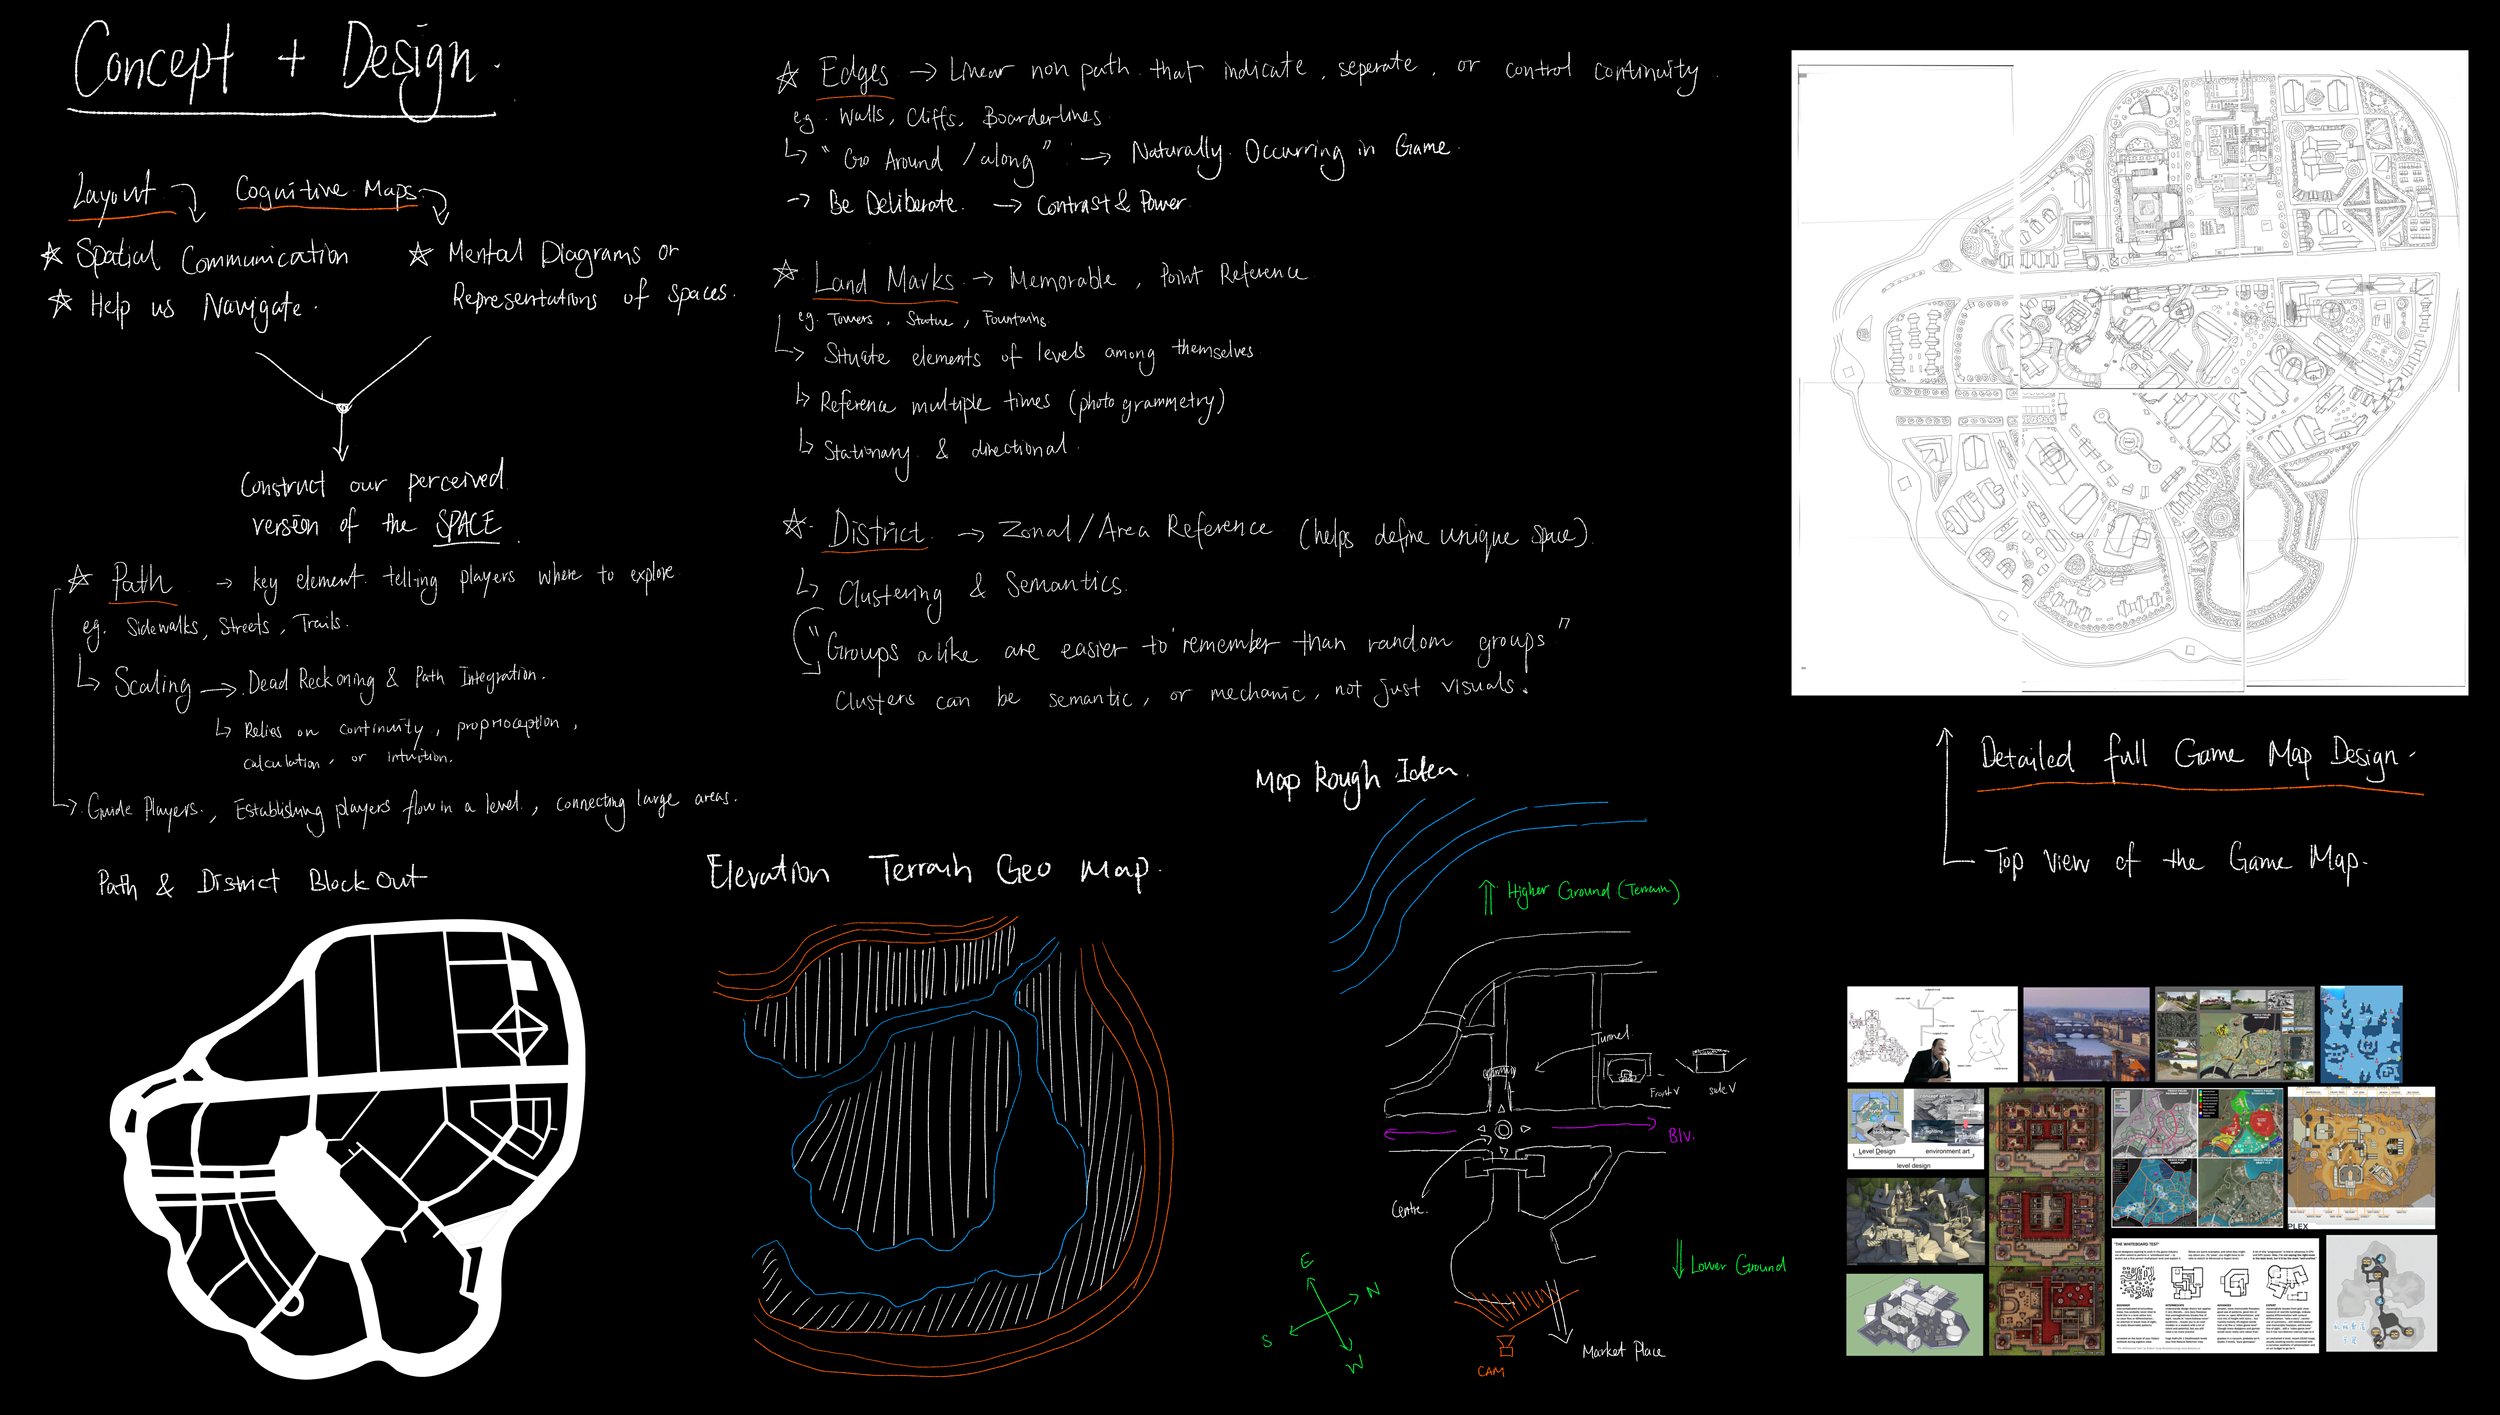 Concept + Design.
Layout
Cognitive Maps
Spatial Communication
Help us Navigate.
Mental Diagrams or
Representations of spaces.
Construct our perceived
version of the SPACE.
Path → key element telling players where to explore
eg. Sidewalks, Streets, Trails.
Scaling → Dead Reckoning & Path Integration.
Relies on continuity, proprioception,
calculation, or intuition.
Guide Players, Establishing players flow in a level, connecting large areas.
Path & District Block Out
Edges → Linear non path that indicate, seperate, or control continuity.
eg. Walls, Cliffs, Boarderlines.
"Go Around / along" → Naturally Occurring in Game.
→ Be Deliberate. → Contrast & Power.
Land Marks → Memorable, Point Reference
eg. Towers, Statue, Fountains.
Situate elements of levels among themselves.
Reference multiple times (photo grammetry)
Stationary & directional.
District → Zonal/Area Reference (helps define unique space).
Clustering & Semantics.
"Groups alike are easier to remember than random groups"
Clusters can be semantic, or mechanic, not just visuals.
Elevation Terrain Geo Map.
Map Rough Idea.
Higher Ground (Terrain)
Tunnel
Front V
Side V
Blv.
Centre.
Lower Ground
E
N
S
W
CAM
Market Place
Detailed full Game Map Design.
Top View of the Game Map.
Level Design
environment art
level design
PLEX
"THE WHITEBOARD TEST"
BEGINNER
INTERMEDIATE
ADVANCED
EXPERT